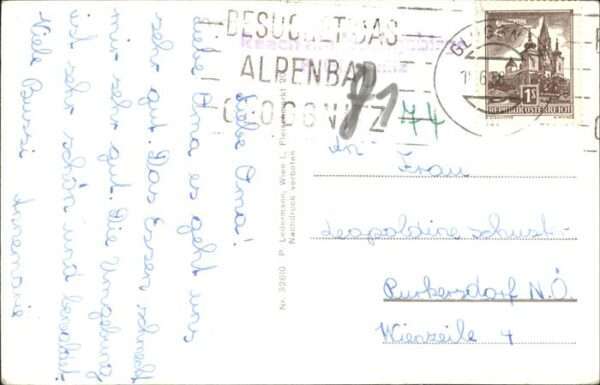 BESUCHET DAS
ALPENBAD
GLOGGNITZ
GLOGGN
1S
REPUBLIK ÖSTERREICH
81
74
Liebe Oma!
Liebe Oma es geht uns
sehr gut. Das Essen schmeckt
mir sehr gut. Die Umgebung
ist sehr schön und
Viele Bussi
Annemarie
Nr. 32810 P. Ledermann, Wien I., Fleischmarkt 20
Nachdruck verboten
An Frau
Leopoldine Schust-
Purkersdorf N.Ö.
Wienzeile 4